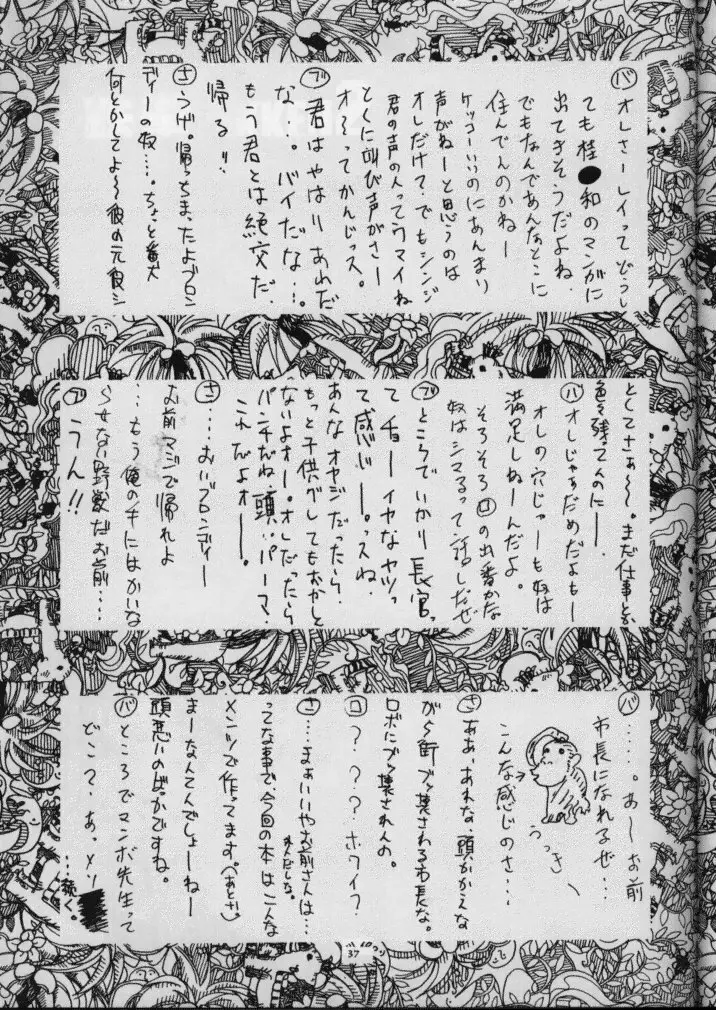 (バ)オレさーレイってどうし
ても桂●和のマンガに
出てきそうだよね。
でもなんであんなとこに
住んでんのかねー
ケッコーいいのにあんまり
声がねーと思うのは
オレだけ?でもシンジ
君の声の人ってウマイね
とくに叫び声がさー
オーってかんじっス。
(ブ)君はやはりあれだ
な…。バイだな…。
もう君とは絶交だ。
帰る!!
(さ)うげ。帰っちまったよブロン
ディーの奴……。ちょと番犬
何とかしてよ〜彼の元食シ
としてさぁ〜〜。まだ仕事とか
色々残てんのにー。
(バ)オレじゃぁだめだよもー
オレの穴じゃーも奴は
満足しねーんだよ。
そろそろ(ロ)の出番かな
奴はシマるって話しだぜ
(ブ)ところでいかり長官っ
てチョーイヤなヤツっ
て感じー。っスね。
あんなオヤジだったら
もっと子供グレてもおかしく
ないよオー。オレだったら
パンチだね。頭、パーマ。
これだよオー。
(さ)……おいブロンディー
お前マジで帰れよ
…もう俺の手にはかいな
らせない野獣だお前……
(ブ)うん!!
(バ)……。あーお前
市長になれるぜ…
こんな感じのさ…
うっきー
(さ)ああ、あれな、頭かかえな
がら街ブッ壊される市長な。
ロボにブッ壊されんの。
(ロ)???ホワイ?
(さ)…まぁいいやお前さんは…
ってな事で、今回の本はこんな
メンツで作ってます。(あとさ)
まーなんてんでしょーねー
頭悪いのばっかですね。
(バ)ところでマンボ先生って
どこ?、あっメリ
…続く。
37